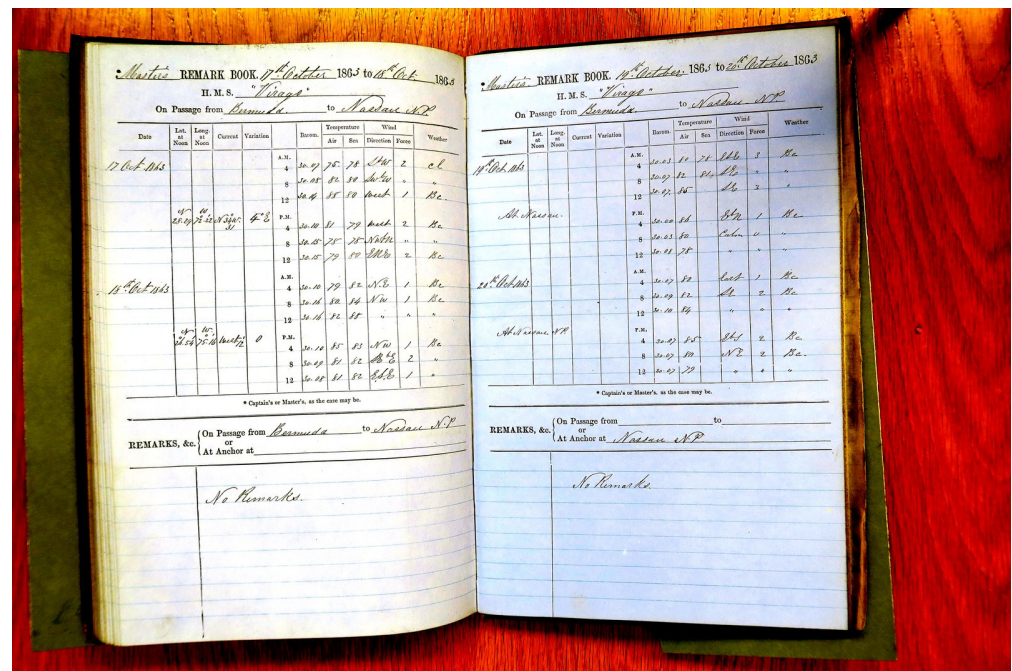 Master's REMARK BOOK. 17th October 1863 to 18th Oct. 1863
H. M. S. "Virago"
On Passage from Bermuda to Nassau N.P.
Date Lat. at Noon Long. at Noon Current Variation Barom. Temperature Air Sea Wind Direction Force Weather
17 Oct 1863 A.M.
4 30.07 75 78 2
8 30.08 82 80 " "
12 88 80 West 1 Bc
N W 4°E P.M.
4 30.10 81 79 West 2 Bc
8 30.15 78 78 " "
12 30.15 79 80 2 Bc
18th Oct 1863 A.M.
4 30.10 79 82 N.E 1 Bc
8 30.16 80 84 N W 1 Bc
12 30.16 82 88 " " "
N W 0 P.M.
4 30.10 85 83 N W 1 Bc
8 30.09 81 82 2 "
12 30.08 81 82 1 "
* Captain's or Master's, as the case may be.
REMARKS, &c. On Passage from Bermuda to Nassau N.P.
or
At Anchor at
No Remarks.
Master's REMARK BOOK. 19th October 1863 to 20th October 1863
H. M. S. "Virago"
On Passage from Bermuda to Nassau N.P.
Date Lat. at Noon Long. at Noon Current Variation Barom. Temperature Air Sea Wind Direction Force Weather
19th Oct 1863 A.M.
4 30.03 80 78 3 Bc
8 30.07 82 " "
12 30.07 85 "
At Nassau. P.M.
4 30.00 86 1 Bc
8 30.03 80 Calm 0 "
12 30.03 78 " " "
20th Oct 1863 A.M.
4 30.07 80 East 1 Bc
8 30.09 82 2 Bc
12 30.10 84 " " "
At Nassau N.P. P.M.
4 30.07 85 2 Bc
8 30.07 80 N.E 2 Bc
12 30.07 79 " " "
* Captain's or Master's, as the case may be.
REMARKS, &c. On Passage from to
or
At Anchor at Nassau N.P.
No Remarks.